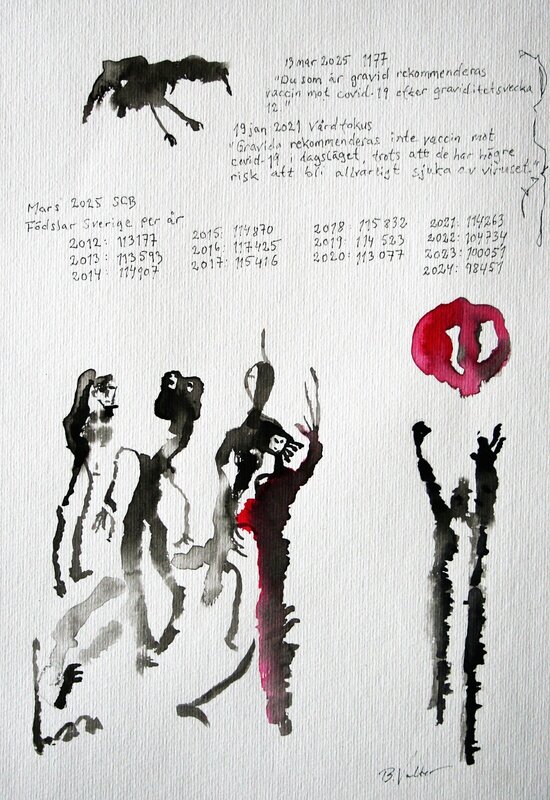 13 mar 2025 1177
"Du som är gravid rekommenderas
vaccin mot covid-19 efter graviditetsvecka
12."
19 jan 2021 Vårdfokus
"Gravida rekommenderas inte vaccin mot
covid-19 i dagsläget, trots att de har högre
risk att bli allvarligt sjuka av viruset."
Mars 2025 SCB
Födslar Sverige per år
2012: 113177
2013: 113593
2014: 114907
2015: 114870
2016: 117425
2017: 115416
2018: 115832
2019: 114523
2020: 113077
2021: 114263
2022: 104734
2023: 100051
2024: 98451